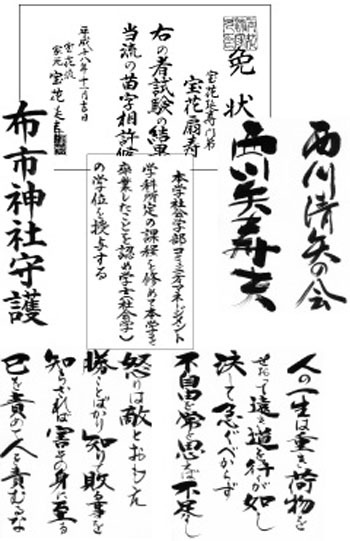 免状
宝花扇寿
右の者試験の結果
当流の苗字相許候
平成十八年十一月吉日
宝花流
家元 宝花
西川清矢の会
布市神社守護
本学社会学部コミュニティマネージメント
学科所定の課程を修めて本学を
卒業したことを認め学士(社会学)
の学位を授与する
人の一生は重き荷物を
せおって遠き道を行くが如し
決して急ぐべからず
不自由を常と思えば不足なし
怒りは敵とおもえ
勝ことばかり知りて敗る事を
知らざれば害その身に至る
己を責めて人を責むるな